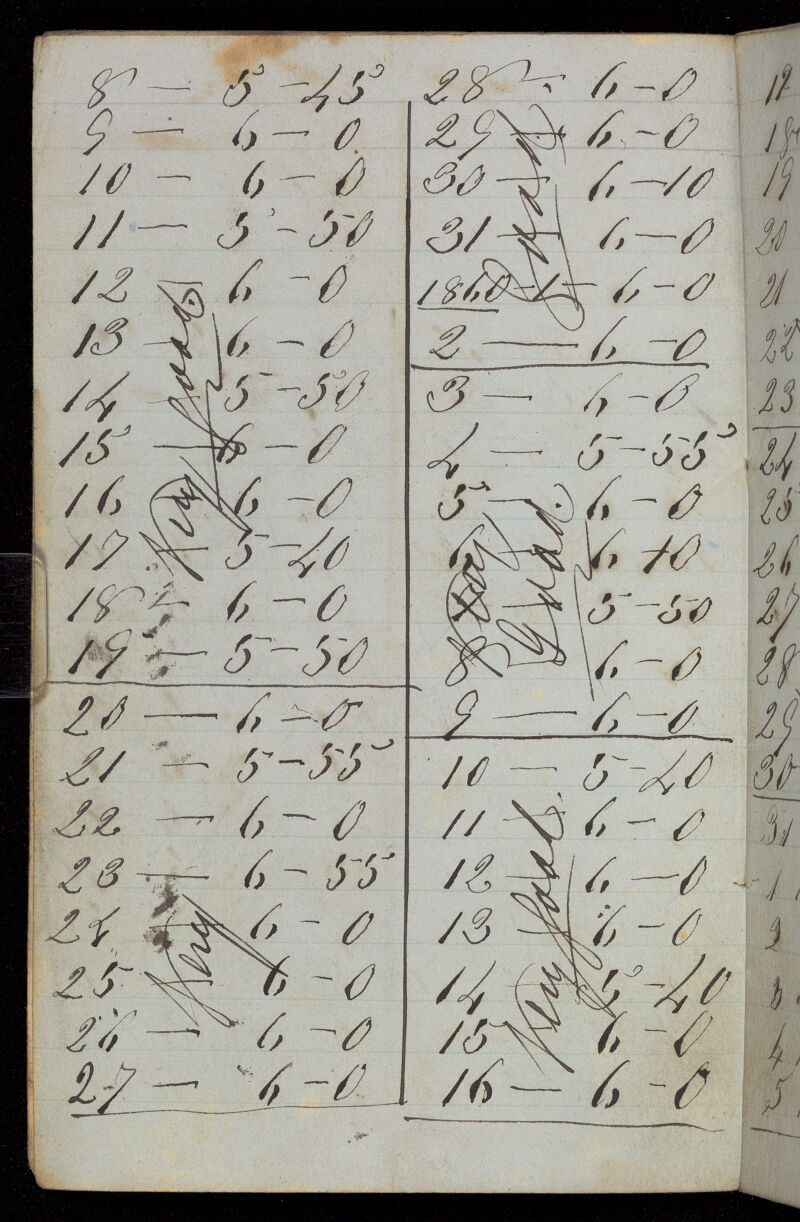 8 — 5 - 45
9 — 6 - 0
10 — 6 - 0
11 — 5 - 50
12 6 - 0
13 - 6 - 0
14 5 - 50
15 6 - 0
16 6 - 0
17 5 - 40
18 - 6 - 0
19 - 5 - 50
Very Good.
20 — 6 - 0
21 — 5 - 55
22 — 6 - 0
23 — 6 - 55
24 6 - 0
25 6 - 0
26 — 6 - 0
27 — 6 - 0
Very
28 - 6 - 0
29 - 6 - 0
30 - 6 - 10
31 - 6 - 0
1860 - 1 - 6 - 0
2 — 6 - 0
Good
3 — 6 - 0
4 — 5 - 55
5 — 6 - 0
6 6 - 0
5 - 50
8 6 - 0
9 — 6 - 0
Very Good.
10 — 5 - 40
11 - 6 - 0
12 - 6 - 0
13 6 - 0
14 5 - 40
15 6 - 0
16 — 6 - 0
Very Good.
19
20
21
22
23
24
25
26
27
28
29
30
31
1
2
3
4
5